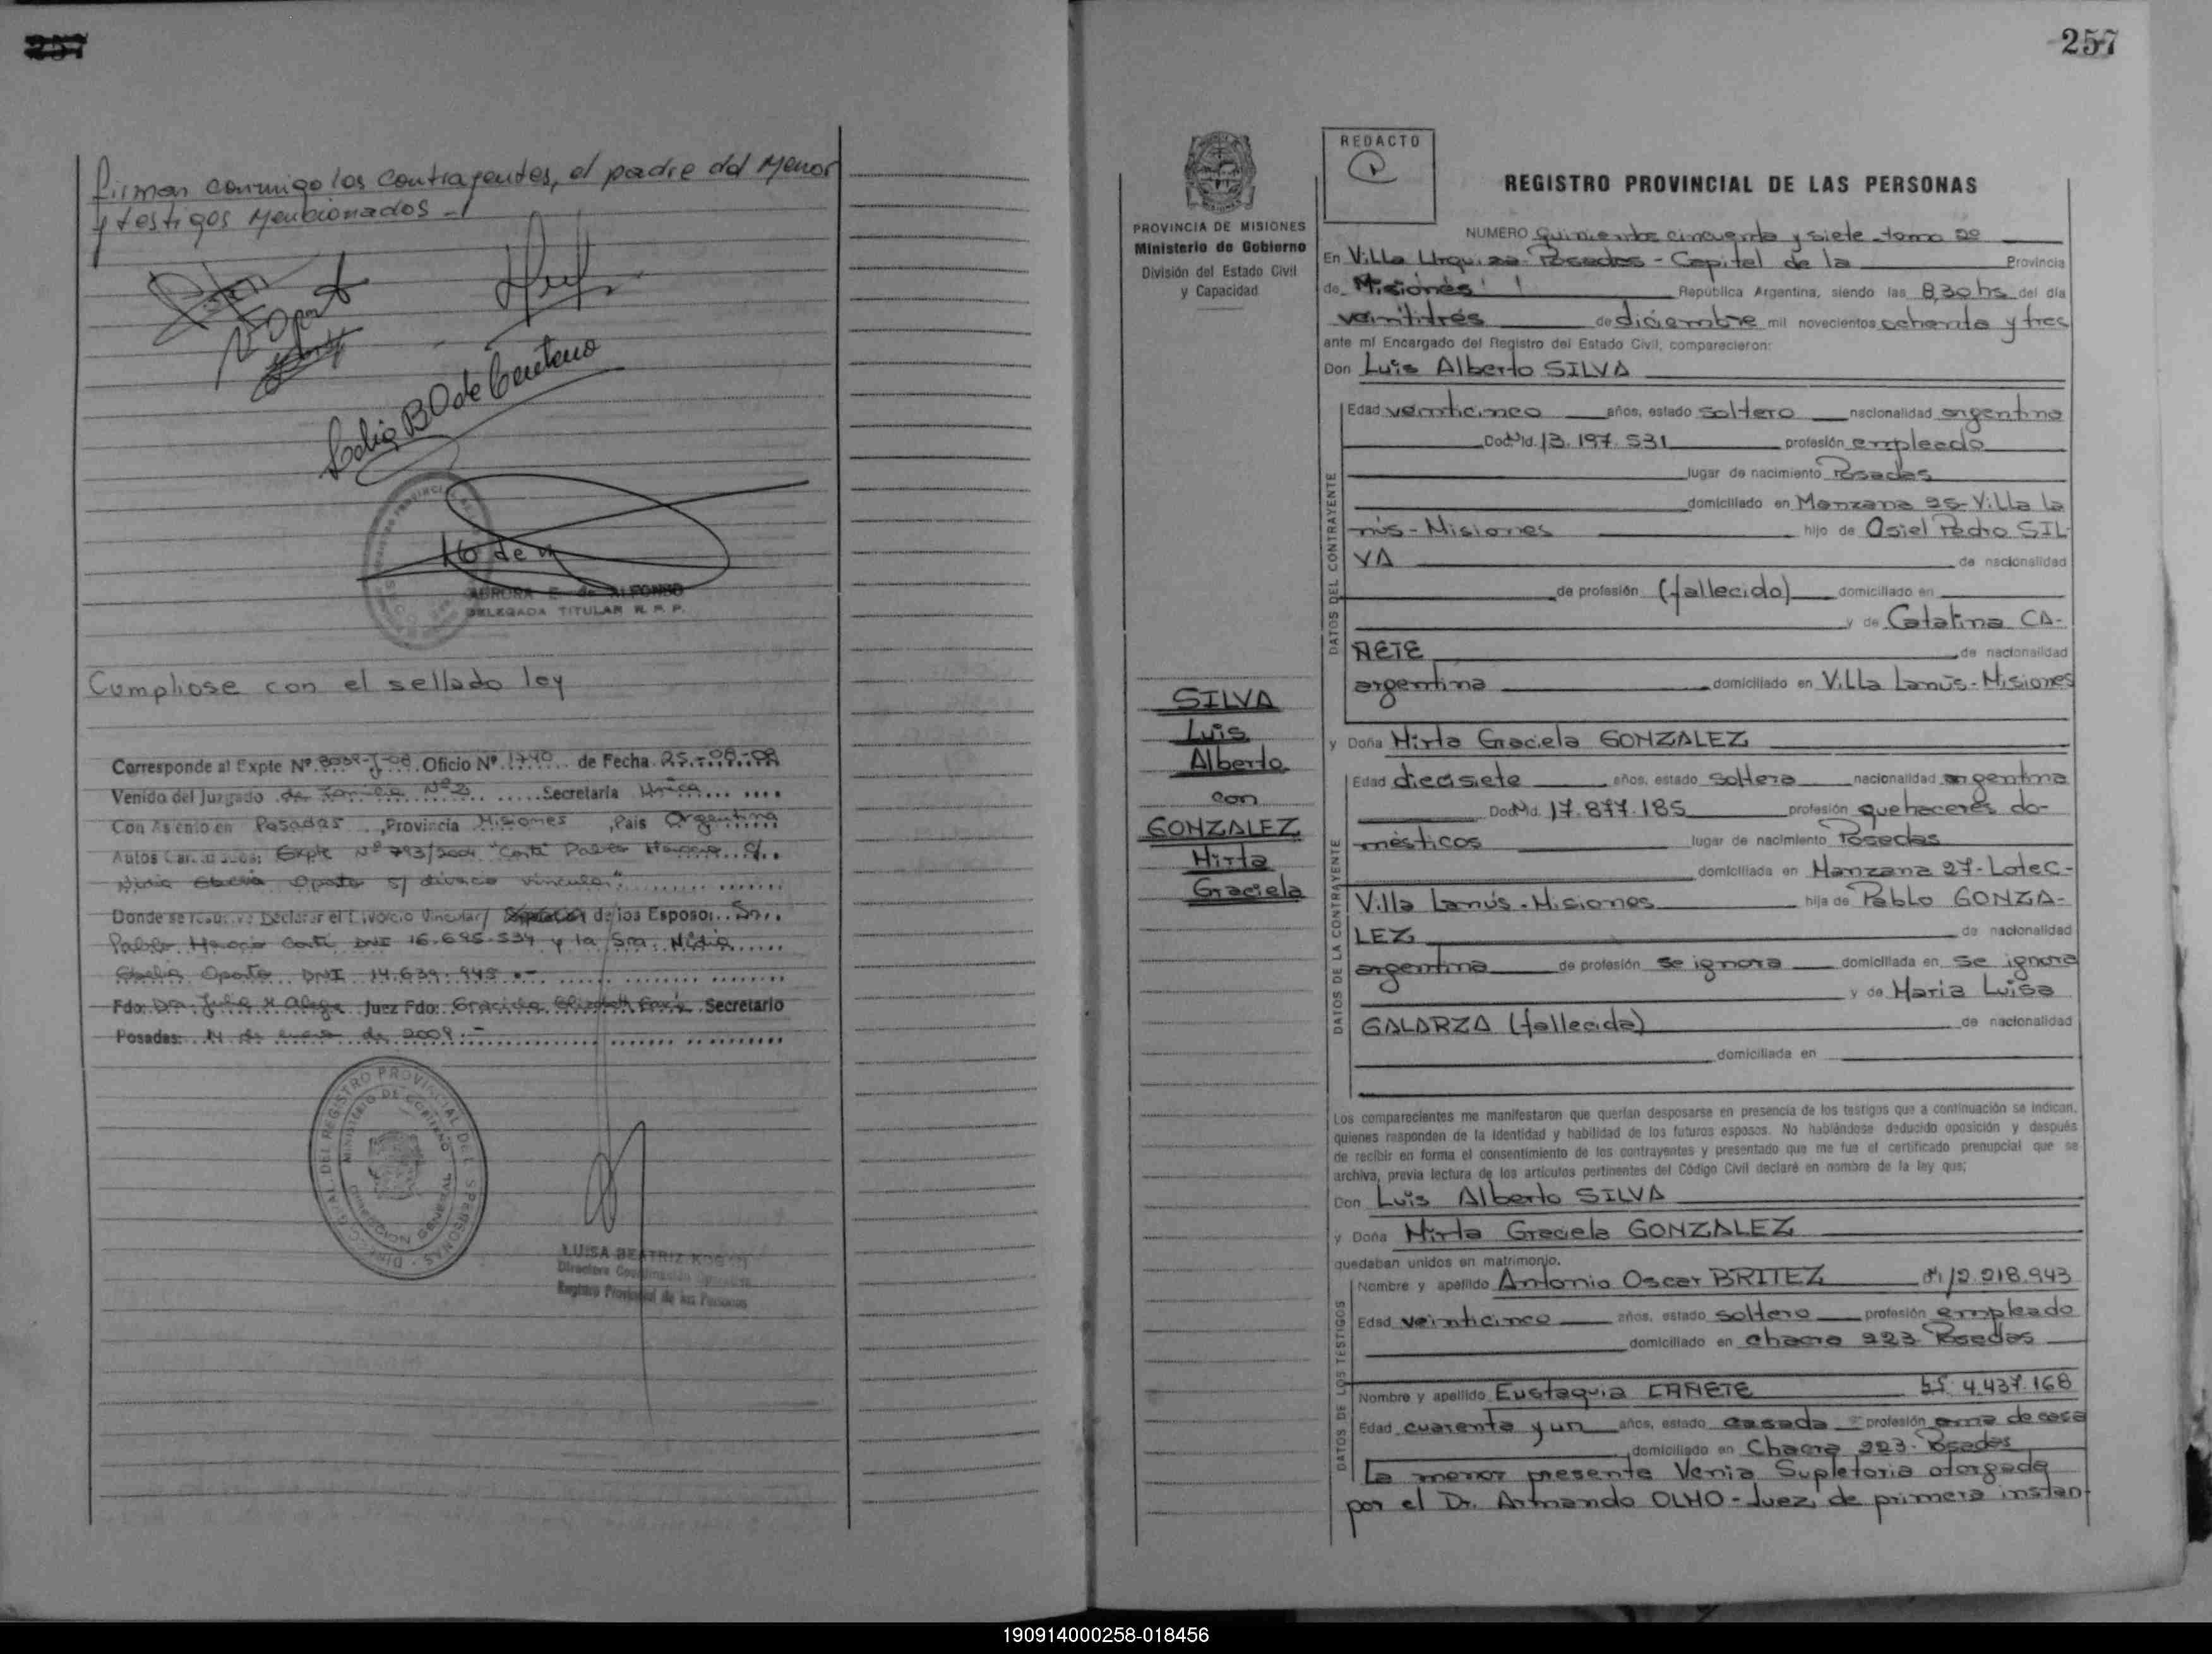 257
firman conmigo los contrayentes, el padre del menor
y testigos mencionados -
Lidia B O de Centeno
AURORA E. de ALFONSO
DELEGADA TITULAR R. P. P.
Cumpliose con el sellado ley
Corresponde al Expte Nº Oficio Nº 1740 de Fecha 25-08-08
Venido del Juzgado de Familia Nº 2 Secretaría Única
Con Asiento en Posadas, Provincia Misiones, País Argentina
Autos Expte Nº 793/2004 "Conti Pablo Horacio c/
Nidia Oporto s/ divorcio vincular"
Donde se Declarar el Divorcio Vincular/ de los Esposos Sr.
Pablo Horacio Conti DNI 16.695.534 y la Sra. Nidia
Oporto DNI 14.639.945.-
Fdo: Dra. Juez Fdo: Graciela Elizabeth Secretario
Posadas: 14 de enero de 2009.-
DIRECC. GRAL. DEL REGISTRO PROVINCIAL DE LAS PERSONAS
MINISTERIO DE GOBIERNO
LUISA BEATRIZ
Directora Coordinación
Registro Provincial de las Personas
257
PROVINCIA DE MISIONES
Ministerio de Gobierno
División del Estado Civil
y Capacidad
REDACTO
REGISTRO PROVINCIAL DE LAS PERSONAS
NUMERO Quinientos cincuenta y siete - tomo 2º
En Villa Urquiza - Posadas - Capital de la Provincia
de Misiones República Argentina, siendo las 8,30 hs del día
veintitrés de diciembre mil novecientos ochenta y tres
ante mí Encargado del Registro del Estado Civil, comparecieron:
Don Luis Alberto SILVA
DATOS DEL CONTRAYENTE
Edad veinticinco años, estado soltero nacionalidad argentino
Doc. Id. 13.197.531 profesión empleado
lugar de nacimiento Posadas
domiciliado en Manzana 25 - Villa La
nús - Misiones hijo de Osiel Pedro SIL-
VA de nacionalidad
de profesión (fallecido) domiciliado en
y de Catalina CA-
ÑETE de nacionalidad
argentina domiciliado en Villa Lanús - Misiones
SILVA
Luis
Alberto
con
GONZALEZ
Mirta
Graciela
y Doña Mirta Graciela GONZALEZ
DATOS DE LA CONTRAYENTE
Edad diecisiete años, estado soltera nacionalidad argentina
Doc. Id. 17.877.185 profesión quehaceres do-
mésticos lugar de nacimiento Posadas
domiciliada en Manzana 27 - Lote C -
Villa Lanús - Misiones hija de Pablo GONZA-
LEZ de nacionalidad
argentina de profesión se ignora domiciliada en se ignora
y de Maria Luisa
GALARZA (fallecida) de nacionalidad
domiciliada en
Los comparecientes me manifestaron que querían desposarse en presencia de los testigos que a continuación se indican,
quienes responden de la identidad y habilidad de los futuros esposos. No habiéndose deducido oposición y después
de recibir en forma el consentimiento de los contrayentes y presentado que me fue el certificado prenupcial que se
archiva, previa lectura de los artículos pertinentes del Código Civil declaré en nombre de la ley que;
Don Luis Alberto SILVA
y Doña Mirta Graciela GONZALEZ
quedaban unidos en matrimonio.
DATOS DE LOS TESTIGOS
Nombre y apellido Antonio Oscar BRITEZ 12.218.943
Edad veinticinco años, estado soltero profesión empleado
domiciliado en Chacra 223 Posadas
Nombre y apellido Eustaquia CAÑETE 4.437.168
Edad cuarenta y un años, estado casada profesión ama de casa
domiciliado en Chacra 223 - Posadas
La menor presenta Venia Supletoria otorgada
por el Dr. Armando OLMO - Juez de primera instan-
190914000258-018456